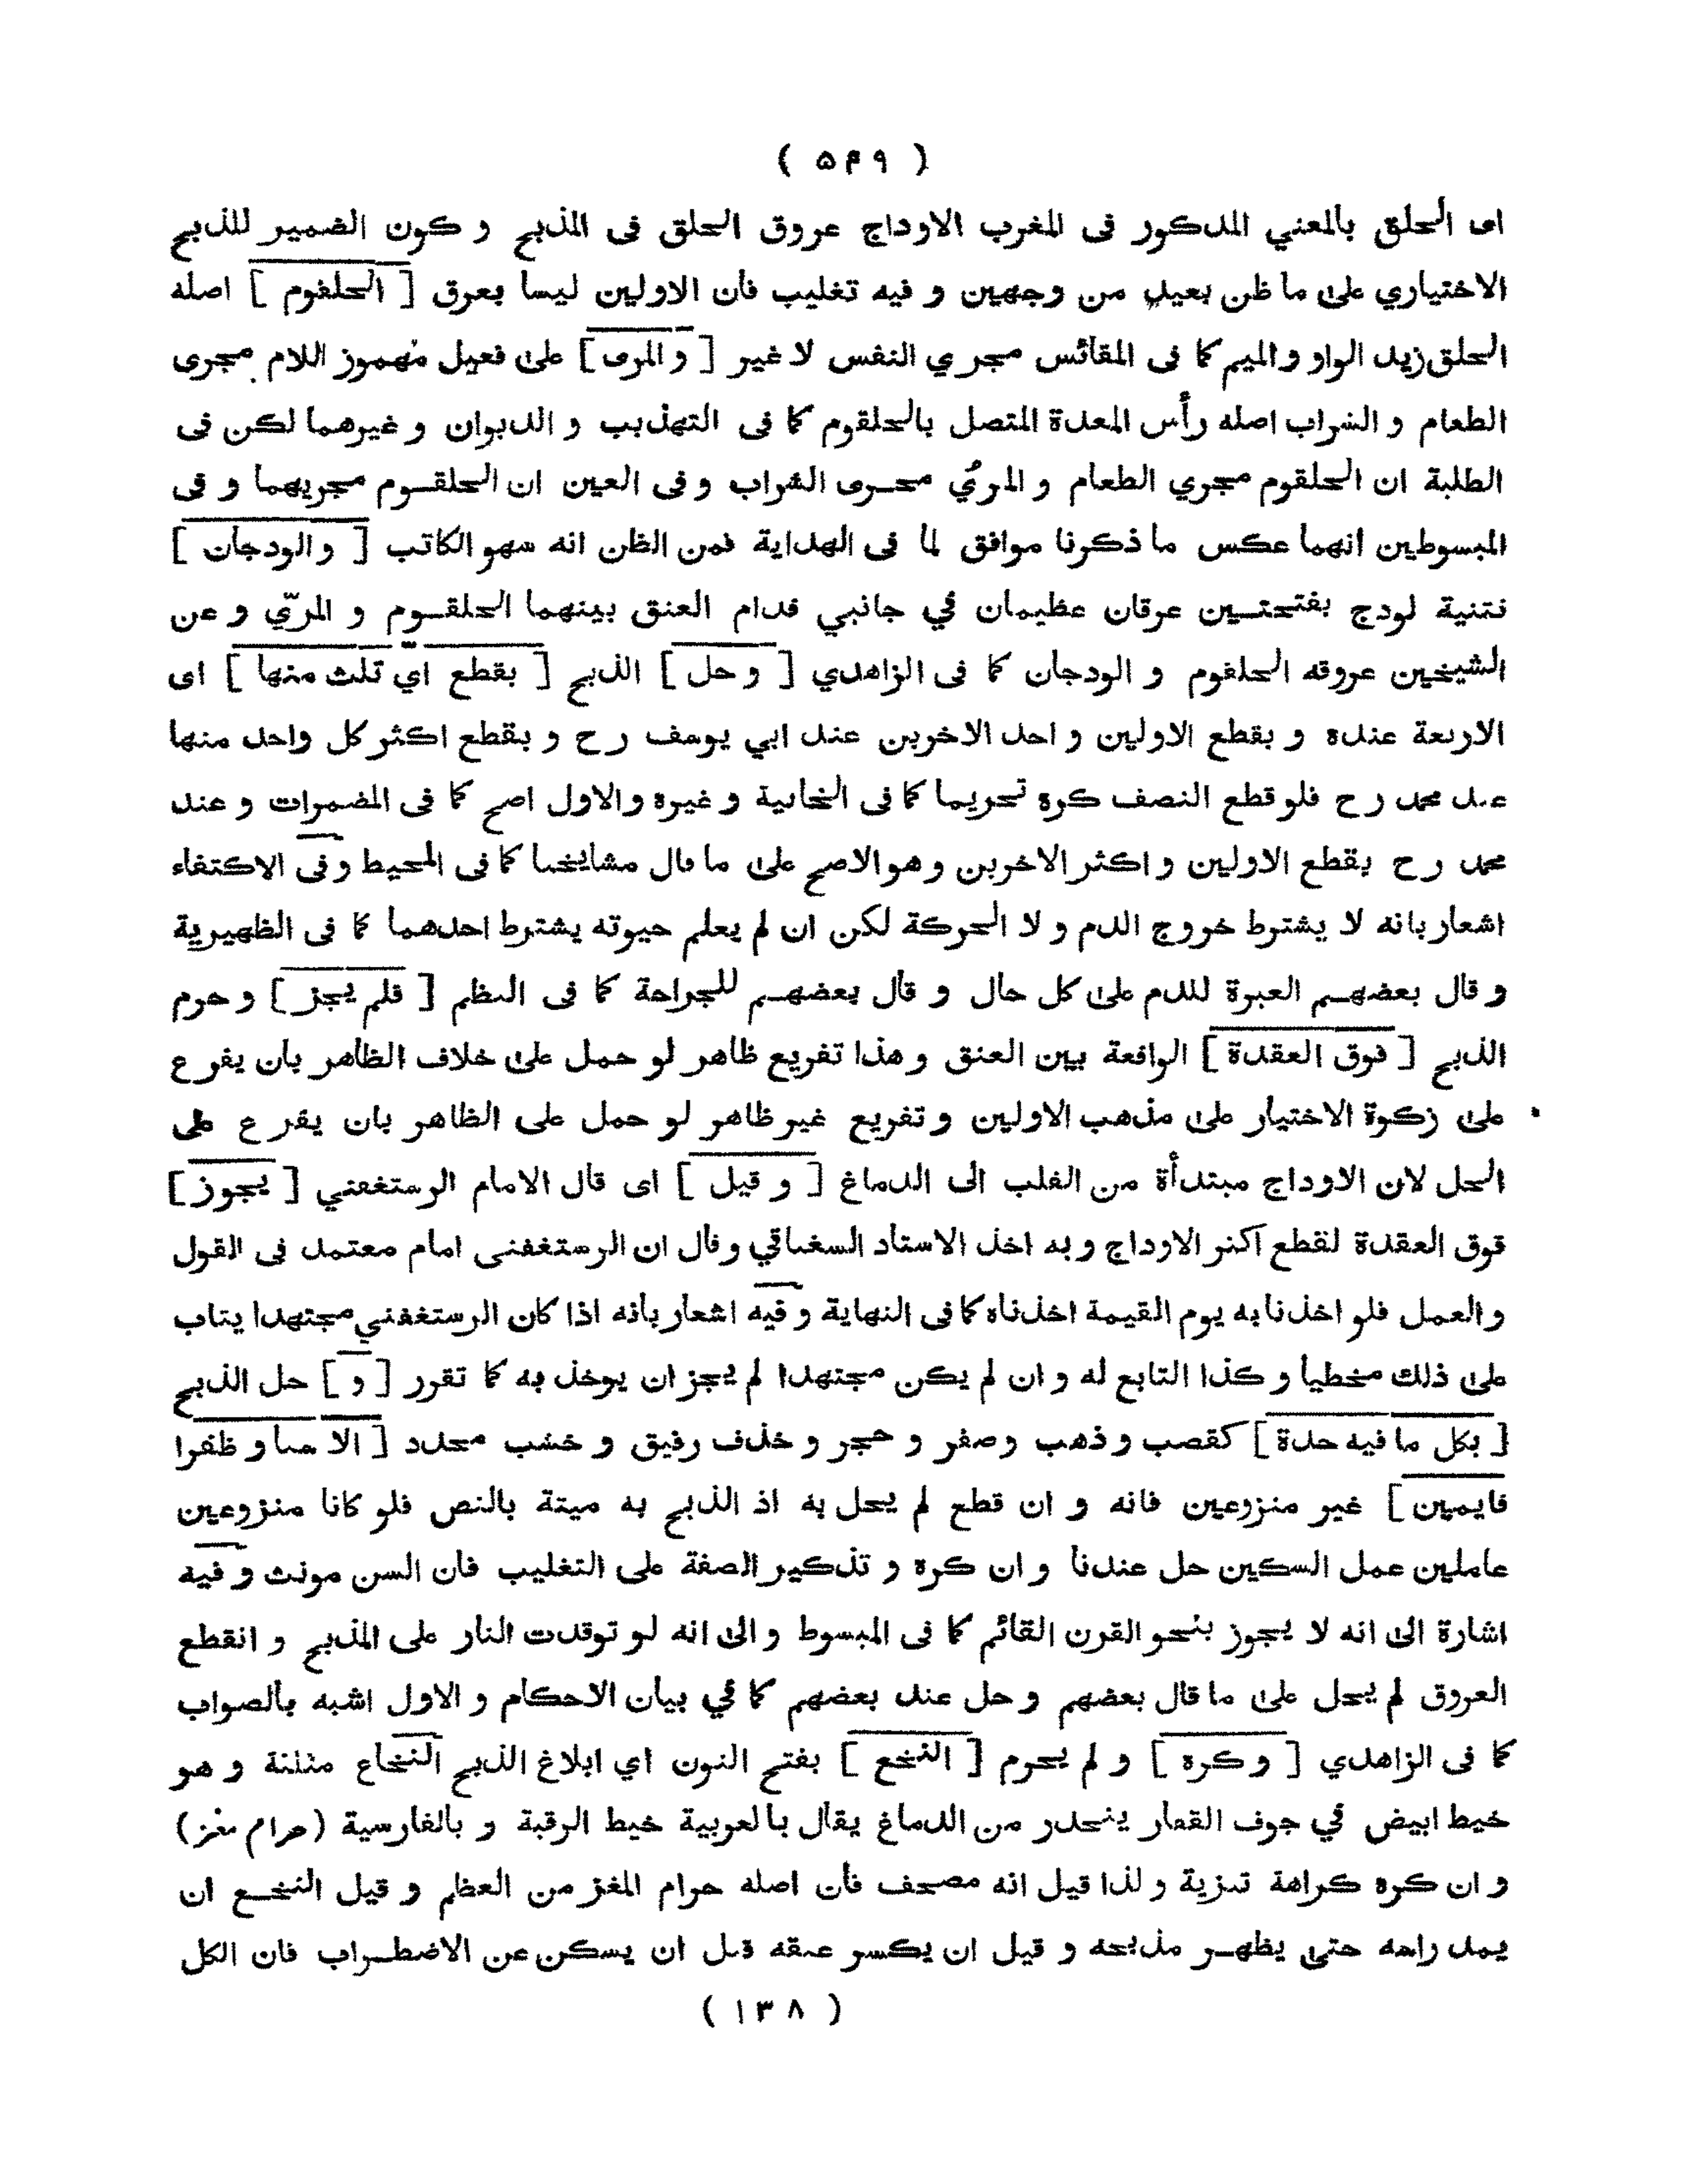 ( ٥٣٩ )
اى الحلق بالمعني المذكور فى المغرب الاوداج عروق الحلق فى المذبح و كون الضمير للذبح
الاختياري على ما ظن بعيد من وجهين و فيه تغليب فان الاولين ليسا بعرق [ الحلقوم ] اصله
الحلق زيد الواو والميم كما فى المقائس مجري النفس لا غير [ و المرى ] على فعيل مهموز اللام مجرى
الطعام و الشراب اصله رأس المعدة المتصل بالحلقوم كما فى التهذيب و الديوان و غيرهما لكن فى
الطلبة ان الحلقوم مجري الطعام و المرئ مجرى الشراب وفى العين ان الحلقوم مجريهما و فى
المبسوطين انهما عكس ما ذكرنا موافق لما فى الهداية فمن الظن انه سهو الكاتب [ و الودجان ]
تثنية لودج بفتحتين عرقان عظيمان في جانبي قدام العنق بينهما الحلقوم و المرّي و عن
الشيخين عروقه الحلقوم و الودجان كما فى الزاهدي [ و حل ] الذبح [ بقطع اي ثلث منها ] اى
الاربعة عنده و بقطع الاولين و احد الاخرين عند ابي يوسف رح و بقطع اكثر كل واحد منها
عند محمد رح فلو قطع النصف كره تحريما كما فى الخانية و غيره والاول اصح كما فى المضمرات و عند
محمد رح بقطع الاولين و اكثر الاخرين وهو الاصح على ما قال مشايخنا كما فى المحيط وفى الاكتفاء
اشعار بانه لا يشترط خروج الدم و لا الحركة لكن ان لم يعلم حيوته يشترط احدهما كما فى الظهيرية
و قال بعضهم العبرة للدم على كل حال و قال بعضهم للجراحة كما فى النظم [ فلم يجز ] و حرم
الذبح [ فوق العقدة ] الواقعة بين العنق و هذا تفريع ظاهر لو حمل على خلاف الظاهر بان يفرع
على زكوة الاختيار على مذهب الاولين و تفريع غير ظاهر لو حمل على الظاهر بان يفرع على
الحل لان الاوداج مبتدأة من القلب الى الدماغ [ و قيل ] اى قال الامام الرستغفني [ يجوز ]
فوق العقدة لقطع اكثر الاوداج و به اخذ الاستاد السغناقي و قال ان الرستغفنى امام معتمد فى القول
و العمل فلو اخذنا به يوم القيمة اخذناه كما فى النهاية و فيه اشعار بانه اذا كان الرستغفني مجتهدا يثاب
على ذلك مخطيا و كذا التابع له و ان لم يكن مجتهدا لم يجز ان يوخذ به كما تقرر [ و ] حل الذبح
[ بكل ما فيه حدة ] كقصب و ذهب و صفر و حجر و خذف رقيق و خشب محدد [ الا سنا و ظفرا
قايمين ] غير منزوعين فانه و ان قطع لم يحل به اذ الذبح به ميتة بالنص فلو كانا منزوعين
عاملين عمل السكين حل عندنا و ان كره و تذكير الصفة على التغليب فان السن مونث و فيه
اشارة الى انه لا يجوز بنحو القرن القائم كما فى المبسوط و الى انه لو توقدت النار على المذبح و انقطع
العروق لم يحل على ما قال بعضهم و حل عند بعضهم كما في بيان الاحكام و الاول اشبه بالصواب
كما فى الزاهدي [ و كره ] و لم يحرم [ النخع ] بفتح النون اي ابلاغ الذبح النخاع مثلثة و هو
خيط ابيض في جوف الفقار ينحدر من الدماغ يقال بالعربية خيط الرقبة و بالفارسية (حرام مغز)
و ان كره كراهة تنزية و لذا قيل انه مصحف فان اصله حرام المغز من العظم و قيل النخع ان
يمد راسه حتى يظهر مذبحه و قيل ان يكسر عنقه قبل ان يسكن عن الاضطراب فان الكل
( ١٣٨ )